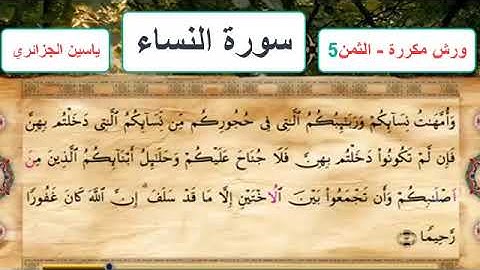 ورش مكررة - الثمن5
سورة النساء
ياسين الجزائري
وَأُمَّهَٰتُ نِسَآئِكُمْ وَرَبَٰٓئِبُكُمُ اُلَّٰتِے فِے حُجُورِكُم مِّن نِّسَآئِكُمُ اُلَّٰتِے دَخَلْتُم بِهِنَّ
فَإِن لَّمْ تَكُونُواْ دَخَلْتُم بِهِنَّ فَلَا جُنَاحَ عَلَيْكُمْ وَحَلَٰٓئِلُ أَبْنَآئِكُمُ الَّذِينَ مِنَ
اَصْلَٰبِكُمْ وَأَن تَجْمَعُواْ بَيْنَ اَلُاخْتَيْنِ إِلَّا مَا قَدْ سَلَفَ إِنَّ اللَّهَ كَانَ غَفُورًا
رَّحِيمًا